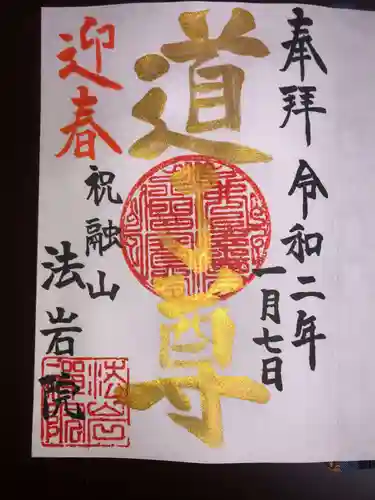 奉拝
令和二年
一月七日
道了尊
迎春
祝融山
法岩院